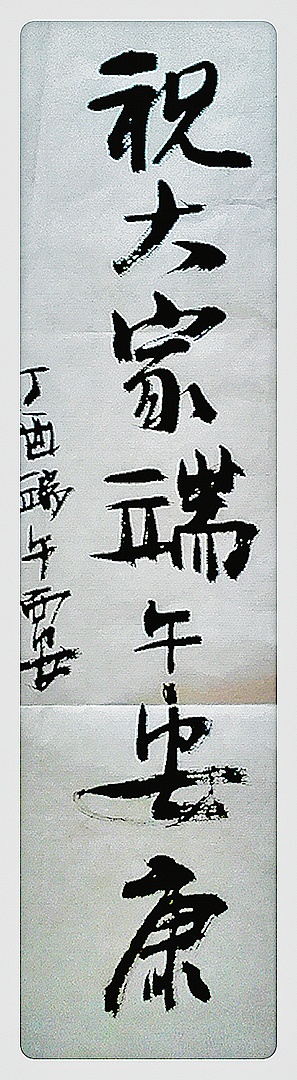 祝大家端午安康
丁酉端午